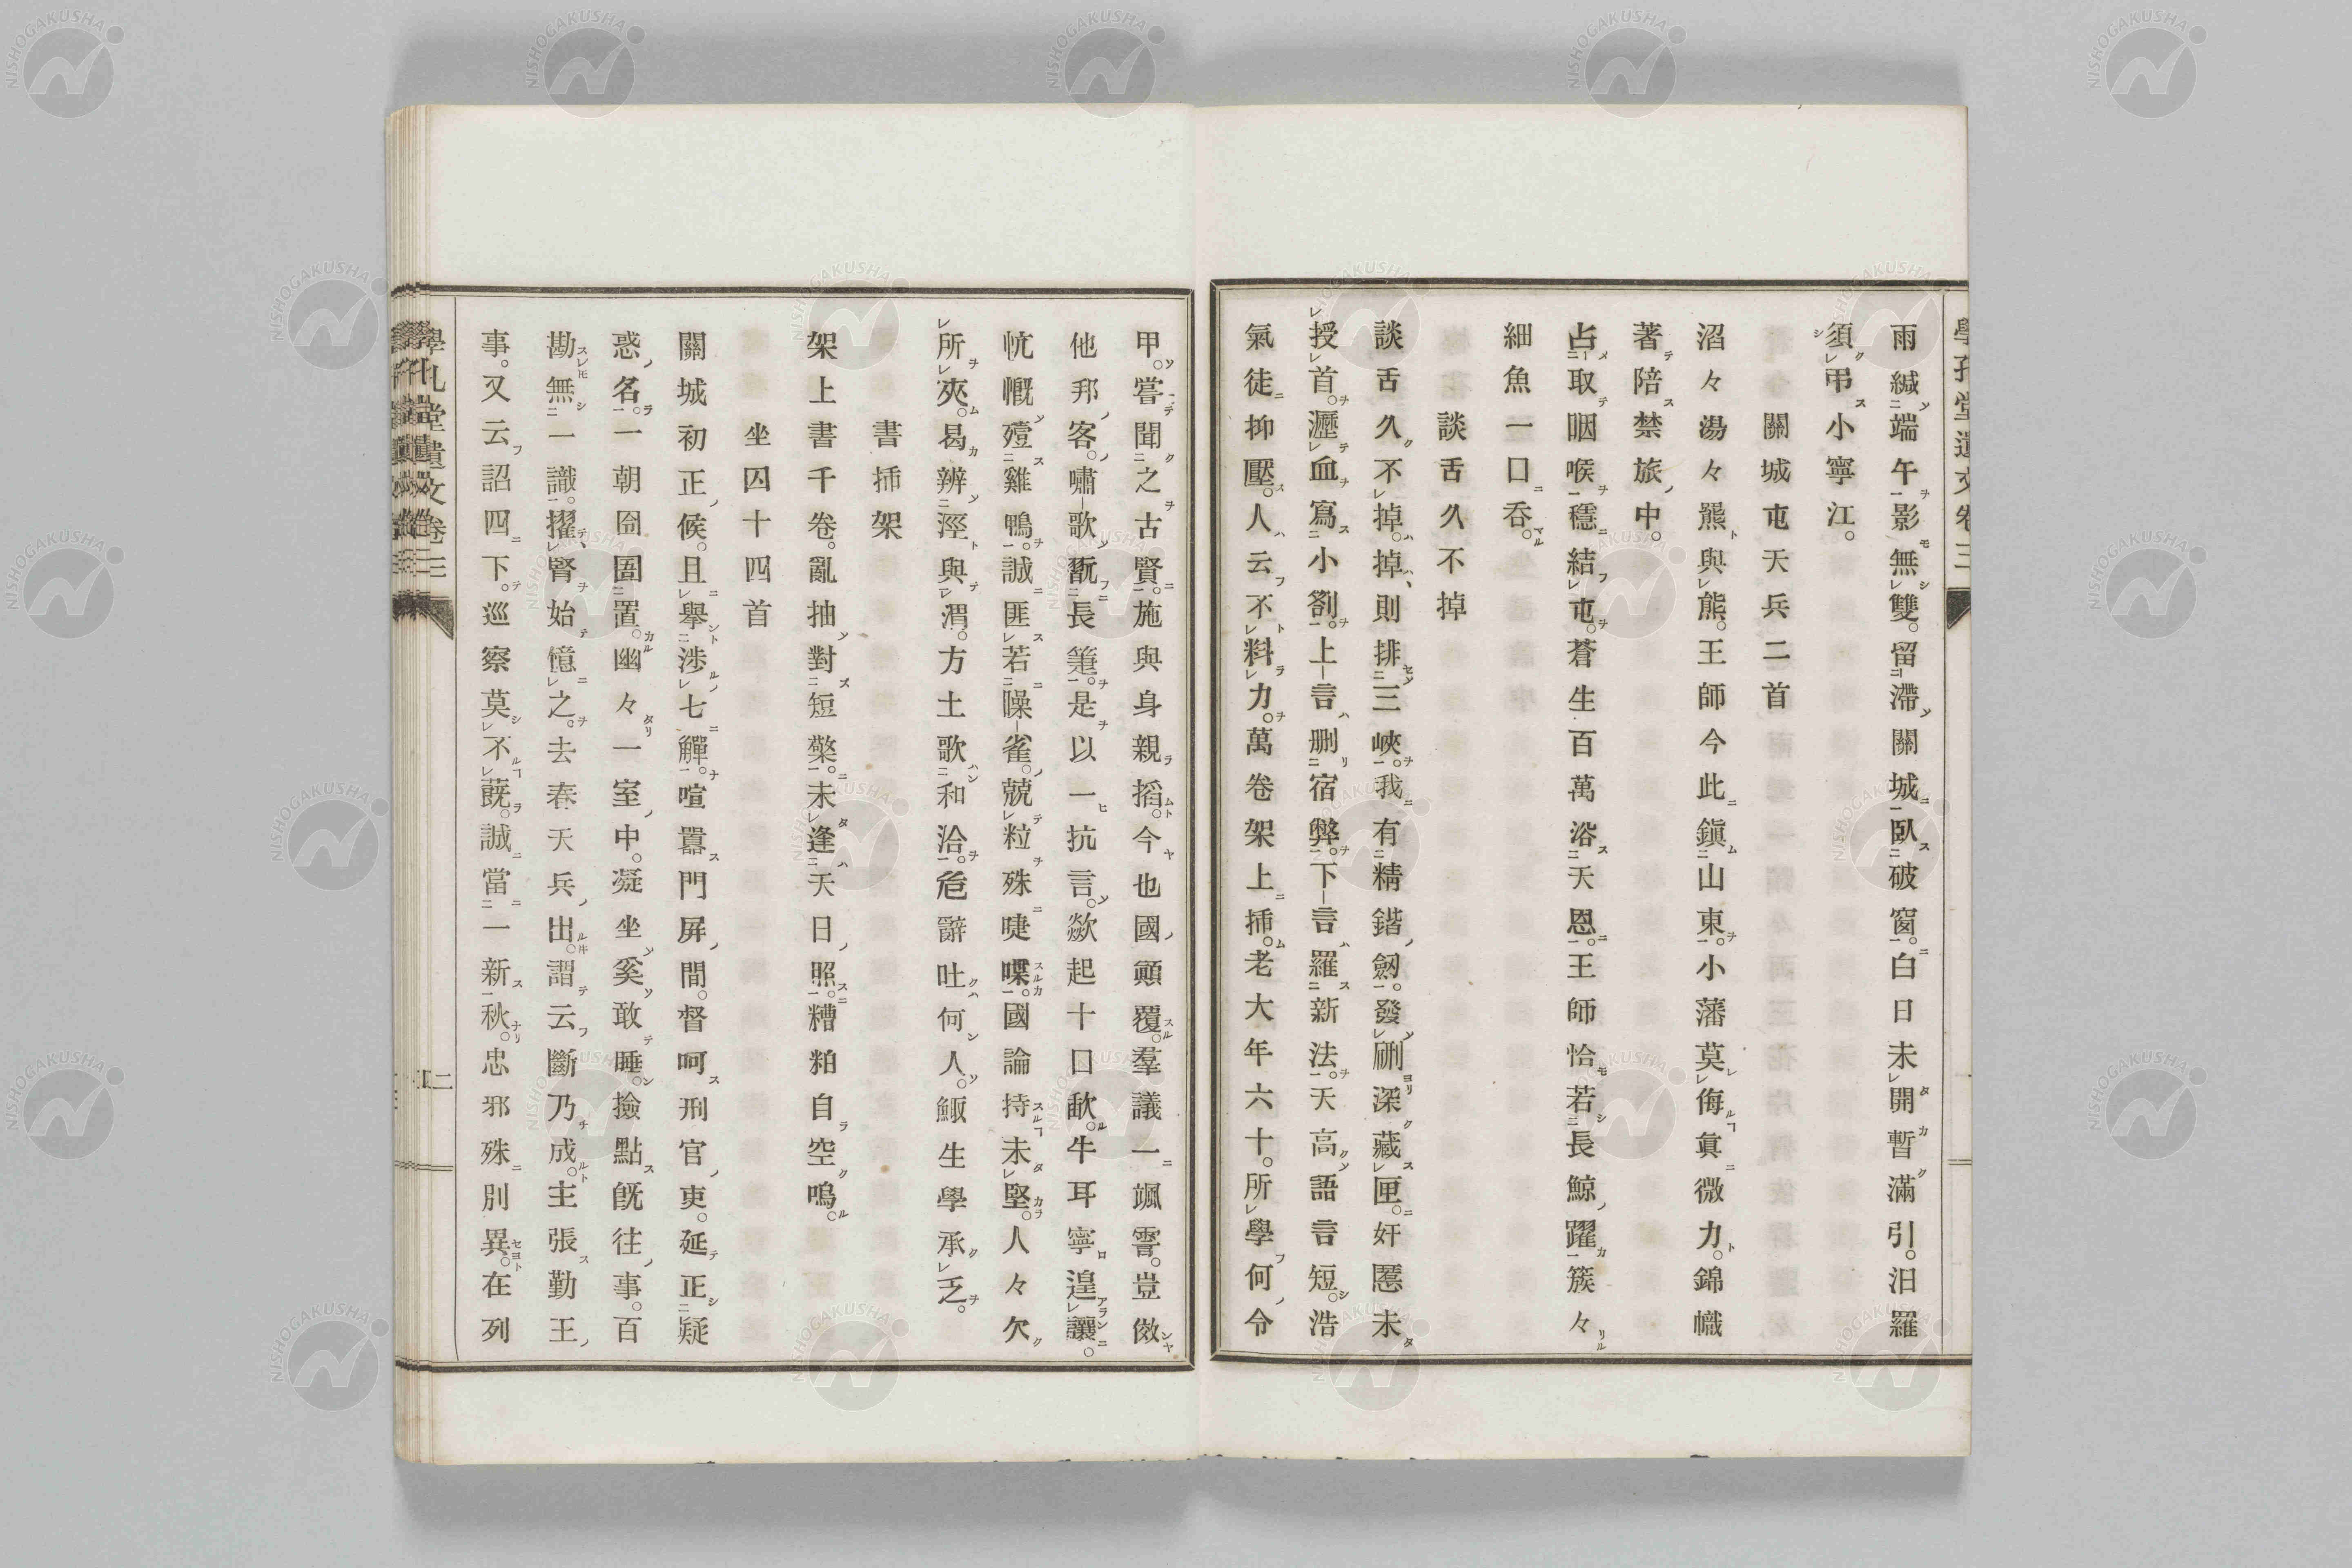 學孔堂遺文卷三
雨緘端午影無雙。留滯關城臥破窗。白日未開暫滿引。汨羅
須弔小寧江。
關城屯天兵二首
沼々湯々羆與熊。王師今此鎭山東。小藩莫侮眞微力。錦幟
著陪禁旅中。
占取咽喉穩結屯。蒼生百萬浴天恩。王師恰若長鯨躍。簇々
細魚一口呑。
談舌久不掉
談舌久不掉。掉則排三峽。我有精鍇劒。發硎深藏匣。奸慝未
授首。瀝血寫小劄。上言刪宿弊。下言羅新法。天高語言短。浩
氣徒抑壓。人云不料力。萬卷架上挿。老大年六十。所學何令
甲。嘗聞之古賢。施與身親搯。今也國顚覆。羣議一颯霅。豈傚
他邦客。嘯歌翫長箑。是以一抗言。歘起十口歃。牛耳寧遑讓。
忼慨殪雞鴨。誠匪若噪雀。兢粒殊啑喋。國論持未堅。人々欠
所夾。曷辨涇與渭。方土歌和洽。危辭吐何人。鯫生學承乏。
書挿架
架上書千卷。亂抽對短檠。未逢天日照。糟粕自空鳴。
坐囚十四首
關城初正候。且擧涉七觶。喧囂門屏間。督呵刑官吏。延正疑
惑名。一朝囹圄置。幽々一室中。凝坐奚敢睡。撿點旣往事。百
勘無一識。擢腎始憶之。去春天兵出。謂云斷乃成。主張勤王
事。又云詔四下。巡察莫不蔇。誠當一新秋。忠邪殊別異。在列
學孔堂遺文卷三